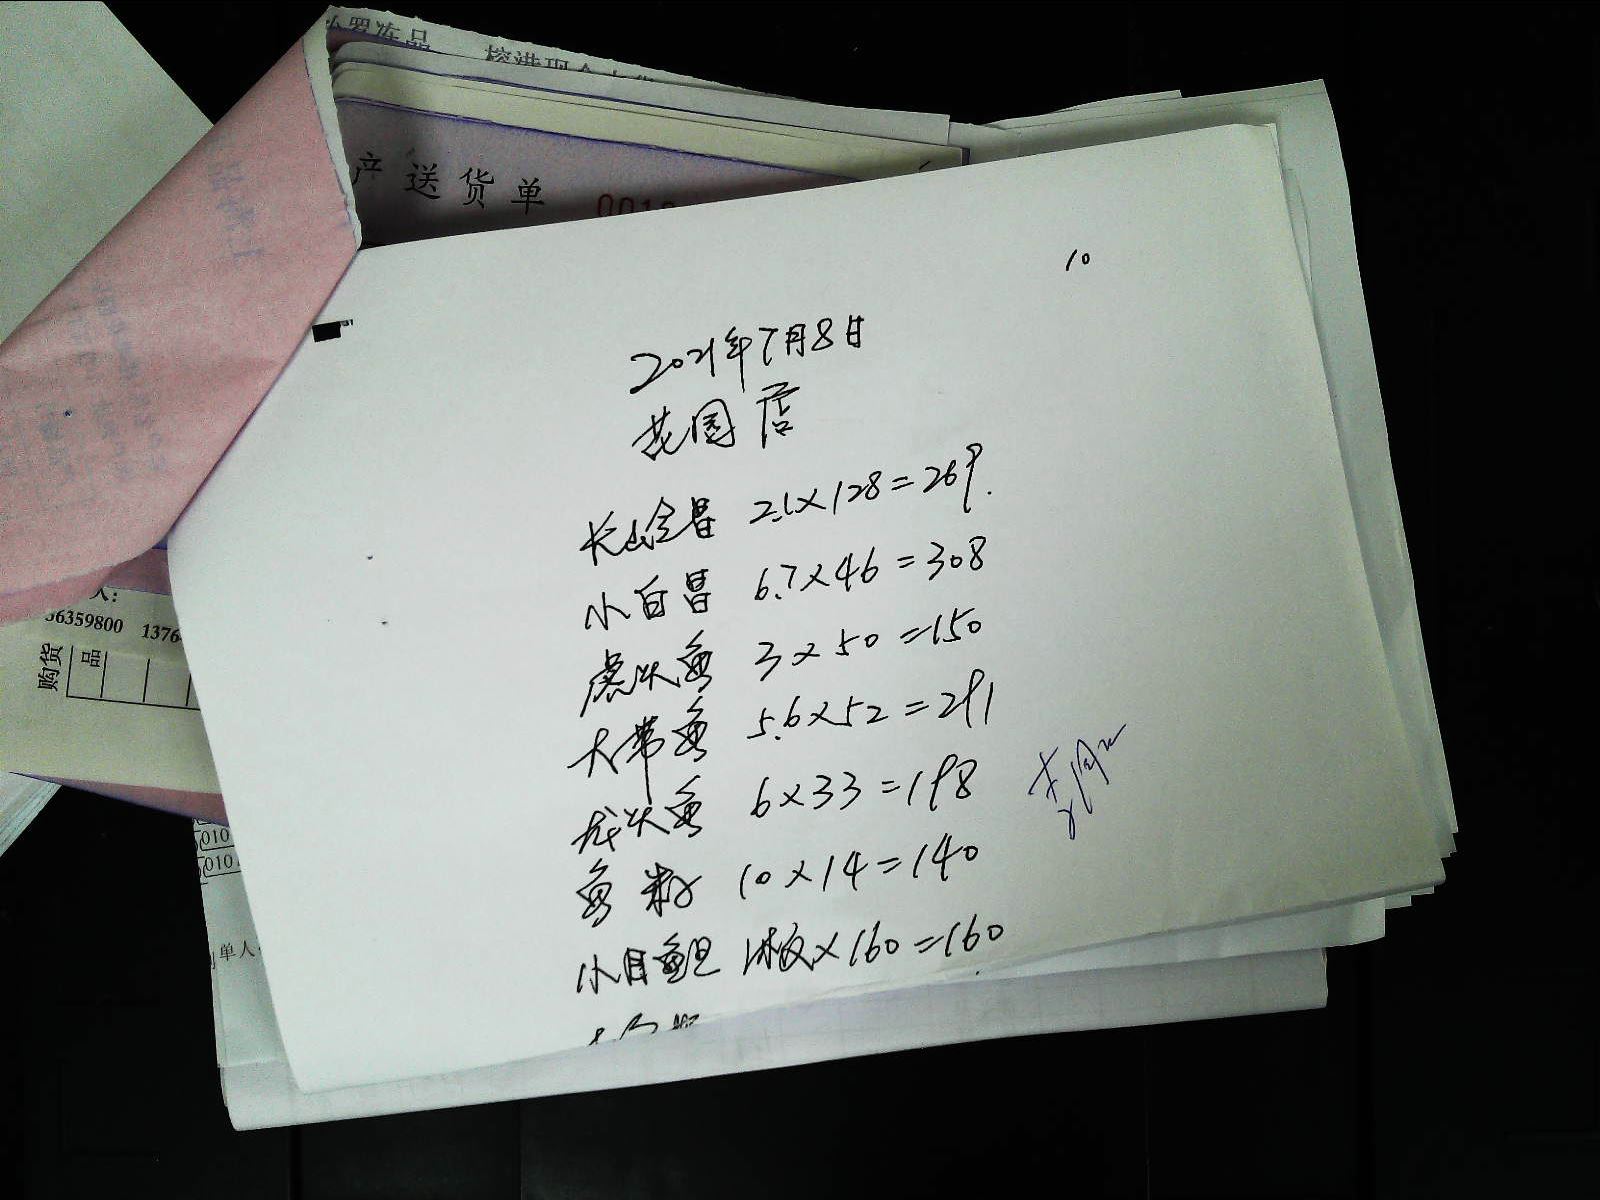 冻品
产送货单
10
2021年7月8日
花园店
长山仓昌 2.1×128=269.
小白昌 6.7×46=308
虎头鱼 3×50=150
大带鱼 5.6×52=291
龙头鱼 6×33=198
鱼籽 10×14=140
小目鱼 1板×160=160
人:
36359800 1376
购货
品
010
010
单人: